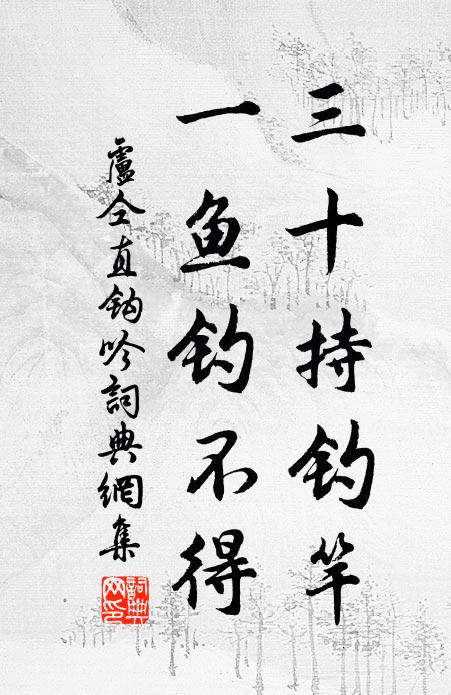 三十持钓竿
一鱼钓不得
盧仝直钩吟詞典網集
詞典